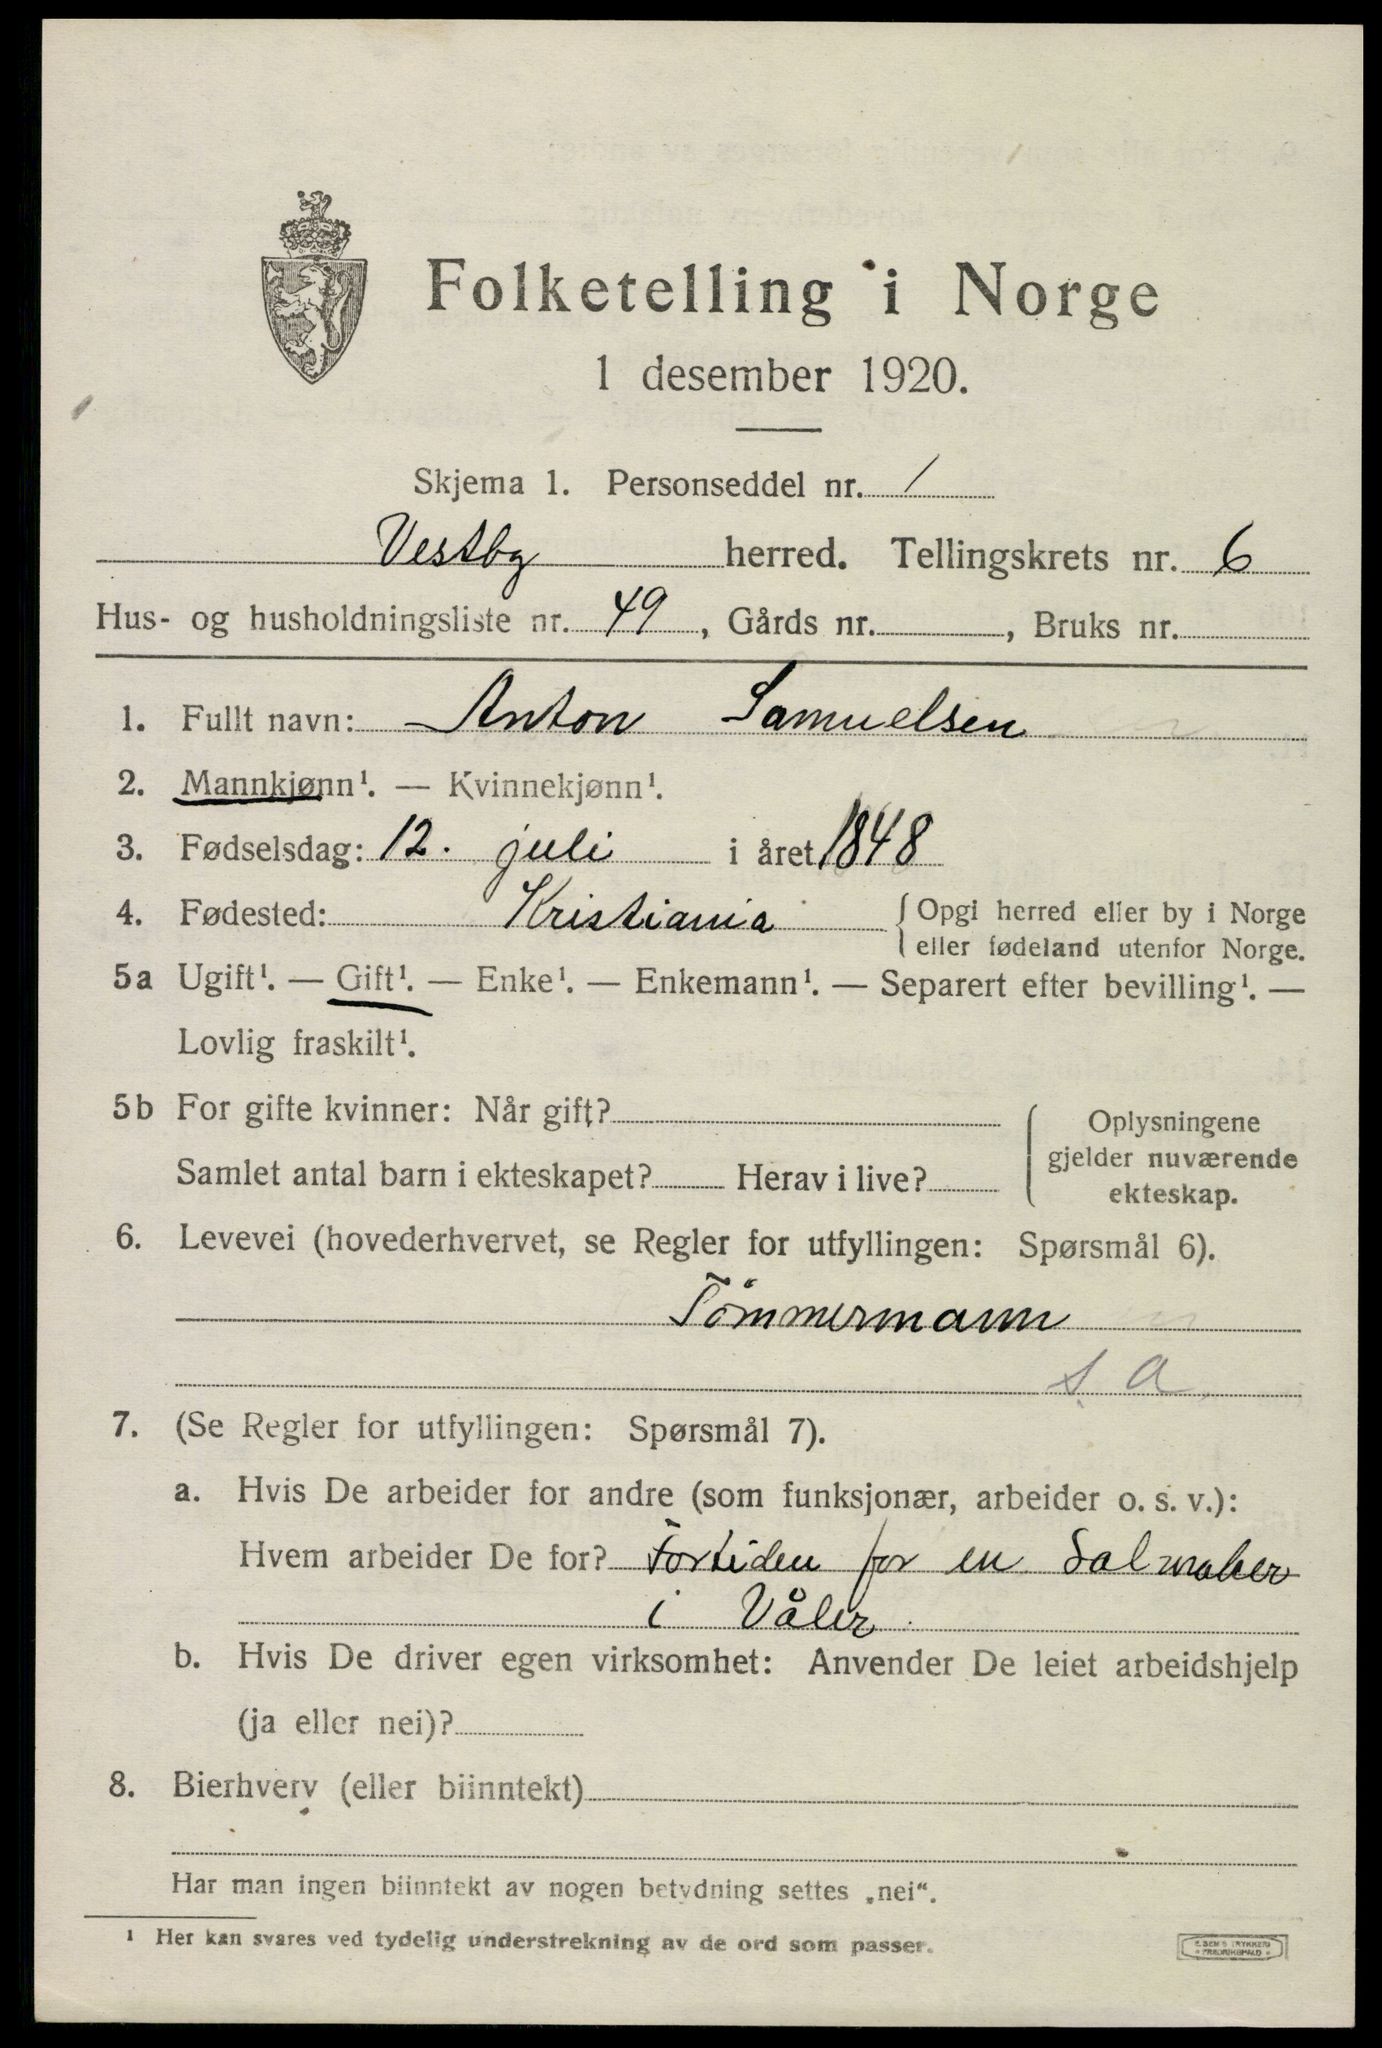 Folketelling i Norge
1 desember 1920.
Skjema 1. Personseddel nr. 1
Vestby herred. Tellingskrets nr. 6
Hus- og husholdningsliste nr. 49, Gårds nr. , Bruks nr.
1. Fullt navn: Anton Samuelsen
2. Mannkjønn¹. — Kvinnekjønn¹.
3. Fødselsdag: 12. juli i året 1848
4. Fødested: Kristiania { Opgi herred eller by i Norge
eller fødeland utenfor Norge.
5a Ugift¹. — Gift¹. — Enke¹. — Enkemann¹. — Separert efter bevilling¹. —
Lovlig fraskilt¹.
5b For gifte kvinner: Når gift?
Samlet antal barn i ekteskapet? Herav i live?
Oplysningene
gjelder nuværende
ekteskap.
6. Levevei (hovederhvervet, se Regler for utfyllingen: Spørsmål 6).
Tömmermann
s. a.
7. (Se Regler for utfyllingen: Spørsmål 7).
a. Hvis De arbeider for andre (som funksjonær, arbeider o. s. v.):
Hvem arbeider De for? Fortiden for en Salmaker
i Våler.
b. Hvis De driver egen virksomhet: Anvender De leiet arbeidshjelp
(ja eller nei)?
8. Bierhverv (eller biinntekt)
Har man ingen biinntekt av nogen betydning settes „nei“.
¹ Her kan svares ved tydelig understrekning av de ord som passer.
TRYKKERI
FREDRIKSHALD